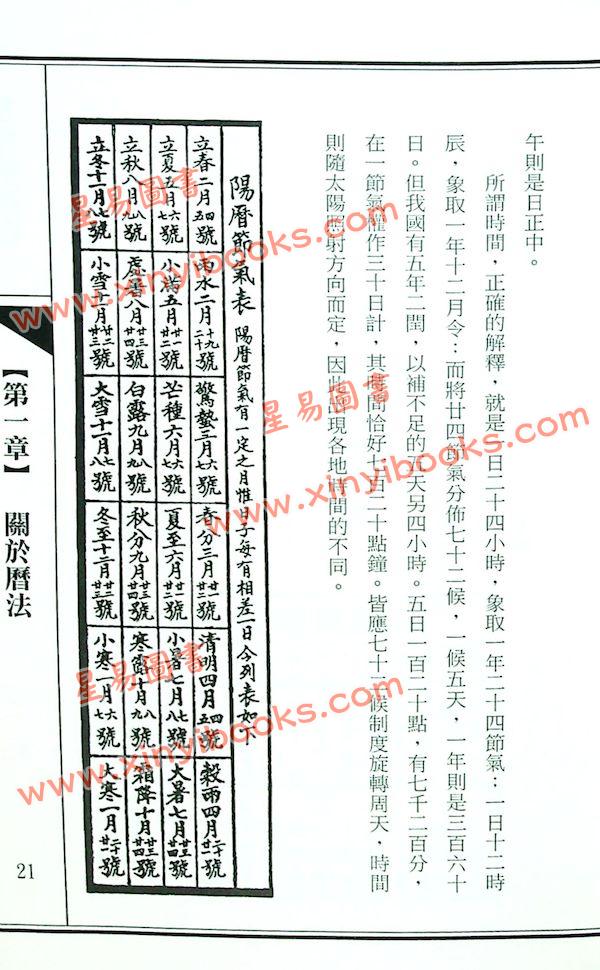 午則是日正中。
所謂時間，正確的解釋，就是一日二十四小時，象取一年二十四節氣；一日十二時
辰，象取一年十二月令；而將廿四節氣分佈七十二候，一候五天，一年則是三百六十
日。但我國有五年二閏，以補不足的五天另四小時。五日一百二十點，有七千二百分，
在一節氣權作三十日計，其間恰好七百二十點鐘。皆應七十二候制度旋轉周天，時間
則隨太陽照射方向而定，因此出現各地時間的不同。
陽曆節氣表 陽曆節氣有一定之月惟日子每有相差一日今列表如下
立春二月四五號 雨水二月十九二十號 驚蟄三月六七號 春分三月廿一廿二號 清明四月四五號 穀雨四月二十廿一號
立夏五月六七號 小滿五月廿一廿二號 芒種六月六七號 夏至六月廿一廿二號 小暑七月七八號 大暑七月廿三廿四號
立秋八月八九號 處暑八月廿三廿四號 白露九月八九號 秋分九月廿三廿四號 寒露十月八九號 霜降十月廿三廿四號
立冬十一月七八號 小雪十一月廿二廿三號 大雪十二月七八號 冬至十二月廿二廿三號 小寒一月六七號 大寒一月二十廿一號
【第一章】 關於曆法
21
星易圖書
www.xinyibooks.com
星易圖書
www.xinyibooks.com
星易圖書
www.xinyibooks.com